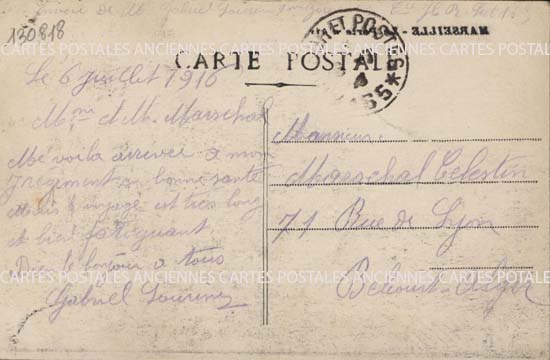 130818
Envoie de M Gabriel
MARSEILLE -
CARTE POSTALE
Le 6 juillet 1916
Mme & M. Marschal
Me voila arrivée a mon
regiment a bonne santé
Mais le voyage est tres long
et bien fatiguant
Dis le bonjour a tous
Gabriel
Monsieur
Marschal Celestin
71 Rue de Lyon
Belcourt - Alger
CARTES POSTALES ANCIENNES CARTES POSTALES ANCIENNES CARTES POSTALES
CARTES POSTALES ANCIENNES CARTES POSTALES ANCIENNES CARTES POSTALES
CARTES POSTALES ANCIENNES CARTES POSTALES ANCIENNES CARTES POSTALES